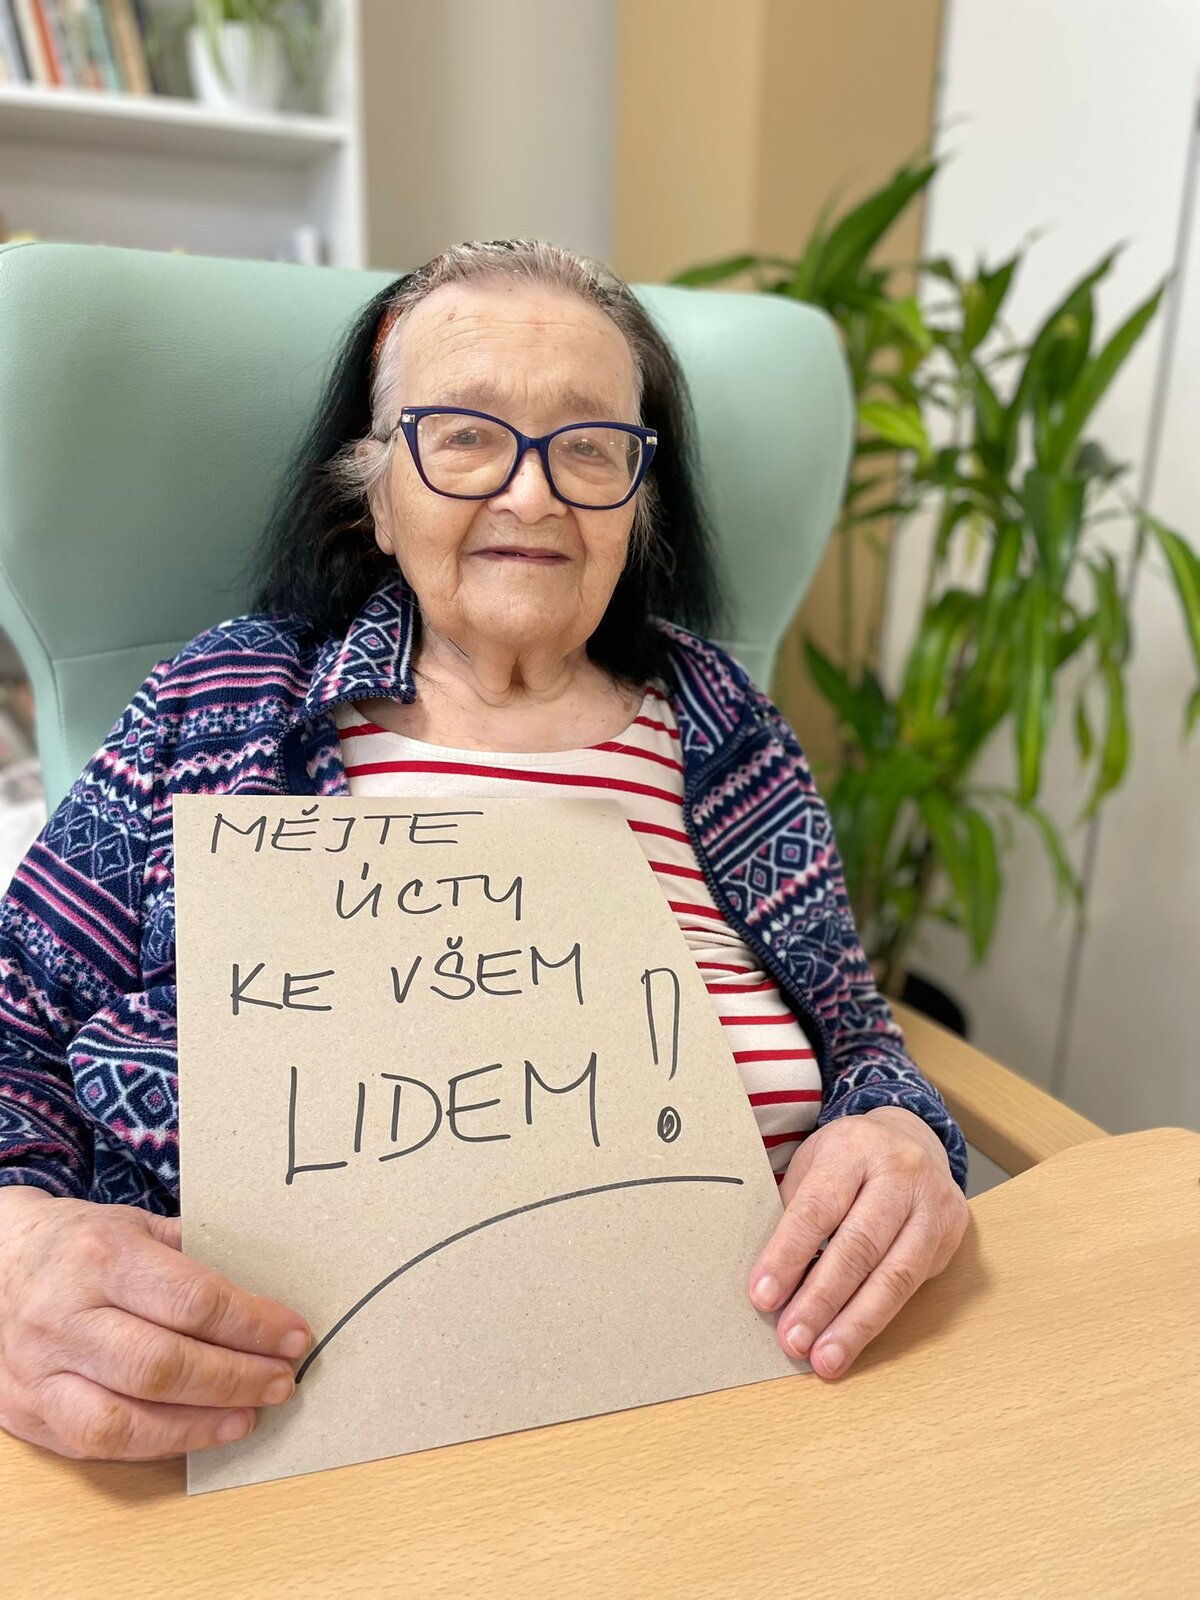 MĚJTE
ÚCTU
KE VŠEM
LIDEM!